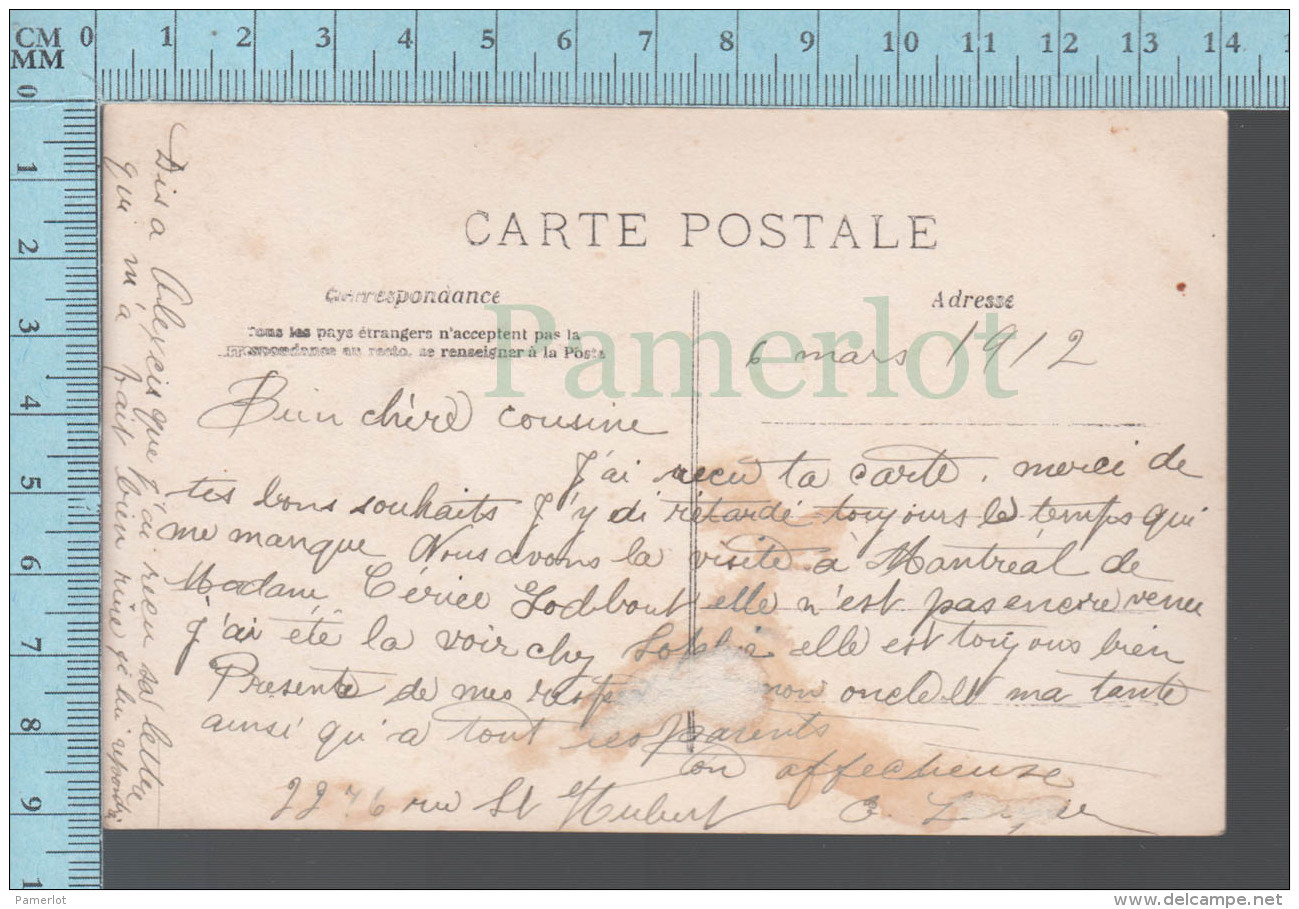 CM 0 1 2 3 4 5 6 7 8 9 10 11 12 13 14
MM
0 1 2 3 4 5 6 7 8 9
CARTE POSTALE
Correspondance
Tous les pays étrangers n'acceptent pas la
correspondance au recto, se renseigner à la Poste
Adresse
Pamerlot
6 mars 1912
Bien chère cousine
J'ai recu ta carte, merci de
tes bons souhaits J'y di rétardé toujours le temps qui
me manque Nous avons la visite à Montréal de
Madame Godbout elle n'est pas encore venu
J'ai été la voir chez Sophie elle est toujours bien
Presente de mes resp mon oncle et ma tante
ainsi qu'a tout parents
Ton affectieuse
2276 rue St Hubert
Dis a que j'ai recu sa lettre
qui m'a fait bien rire je lui repondrai
Pamerlot
www.delcampe.net